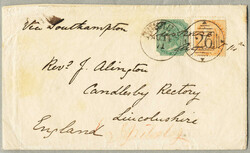 Via Southampton
26
Revd J. Alington
Candlesby Rectory
Lincolnshire
England